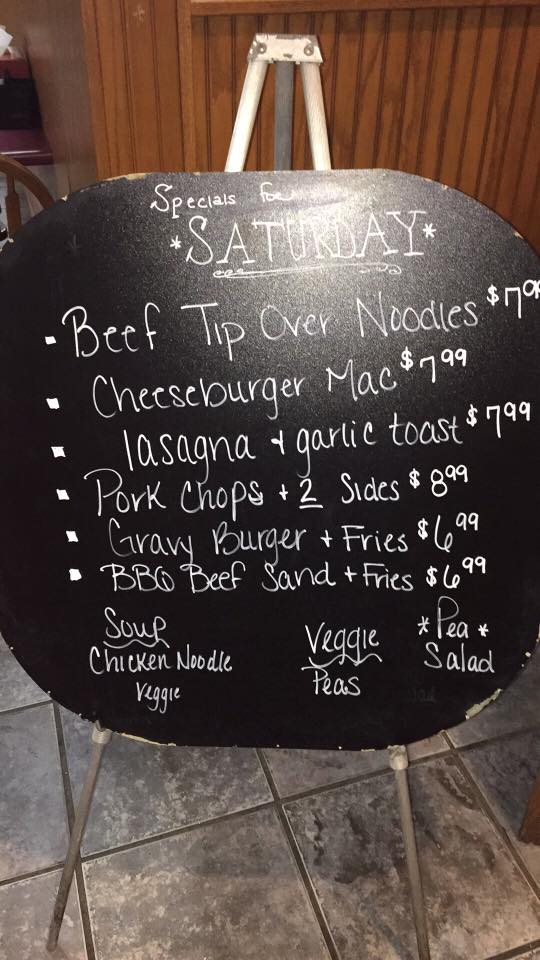 Specials for
*SATURDAY*
- Beef Tip Over Noodles $7.99
- Cheeseburger Mac $7.99
- lasagna + garlic toast $7.99
- Pork Chops + 2 Sides $8.99
- Gravy Burger + Fries $6.99
- BBQ Beef Sand + Fries $6.99
Soup
Chicken Noodle
Veggie
Veggie
Peas
*Pea*
Salad